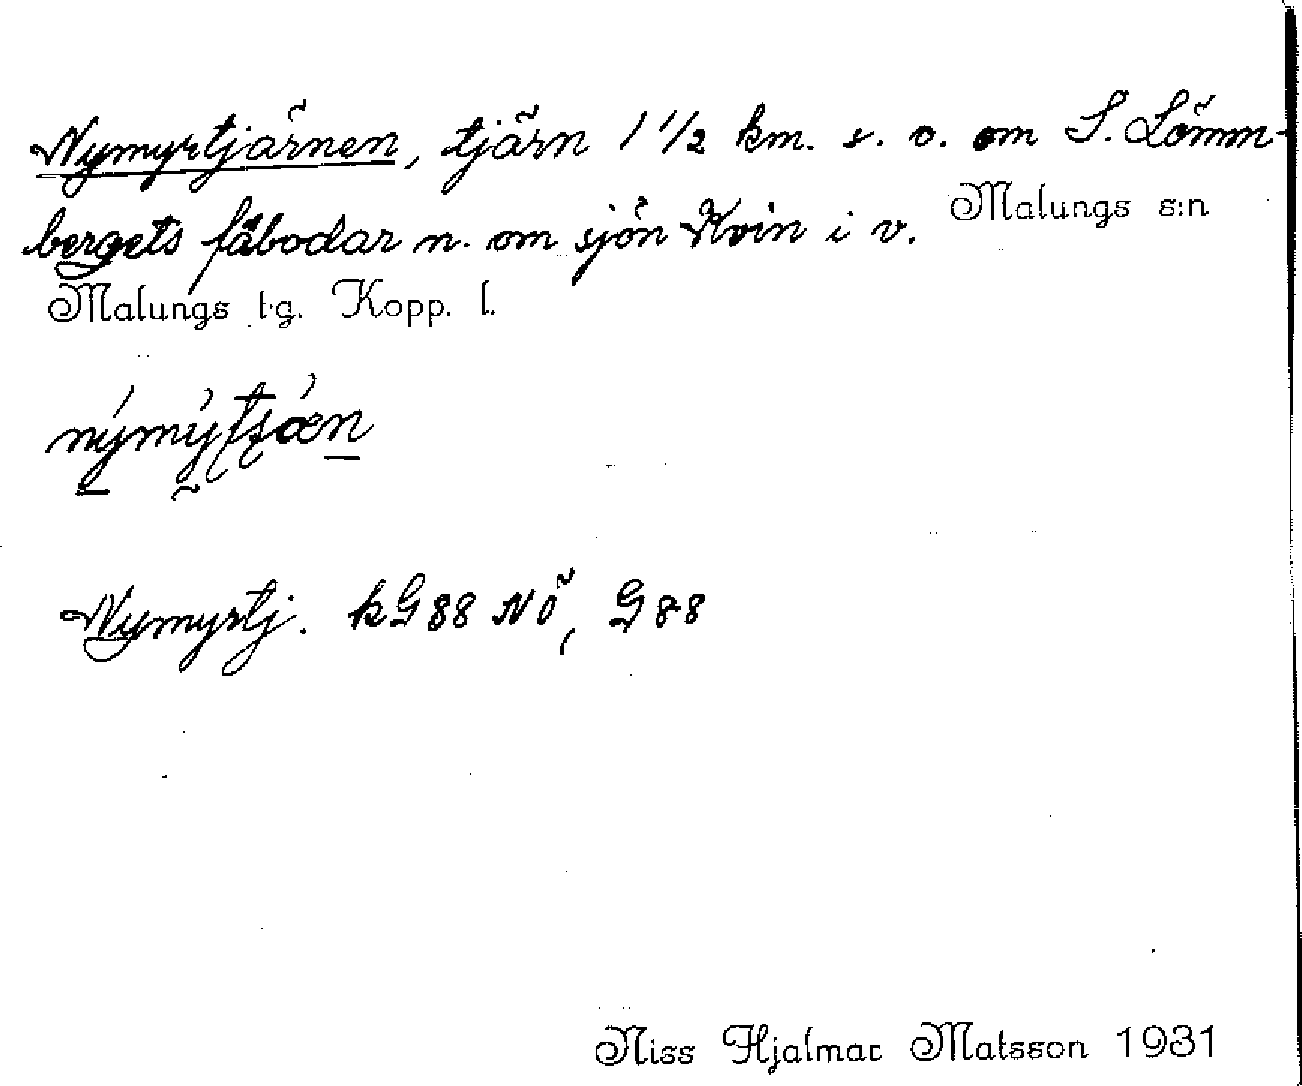 Nymyrtjärnen, tjärn 1 1/2 km. s. o. om S. Lömm-
bergets fäbodar n. om sjön Kvin i v. Malungs s:n
Malungs t·g. Kopp. l.
Nymyrtj. kG88 NÖ, G88
Niss Hjalmar Matsson 1931